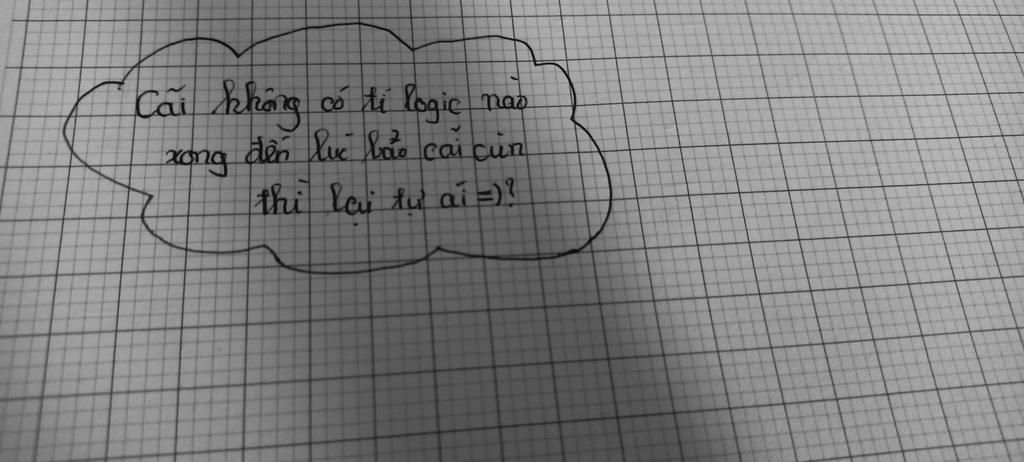 Cãi không có tí logic nào
xong đến lúc bảo cãi cùn
thì lại tự ái =)?